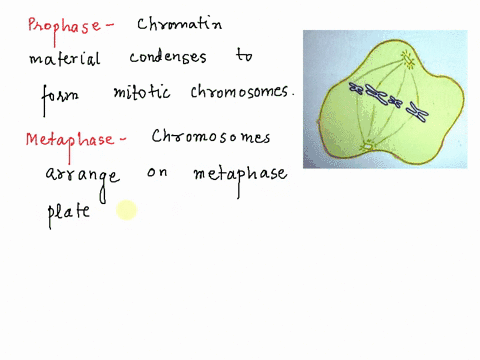 Prophase - Chromatin
material condenses to
form mitotic chromosomes.
Metaphase - Chromosomes
arrange on metaphase
plate